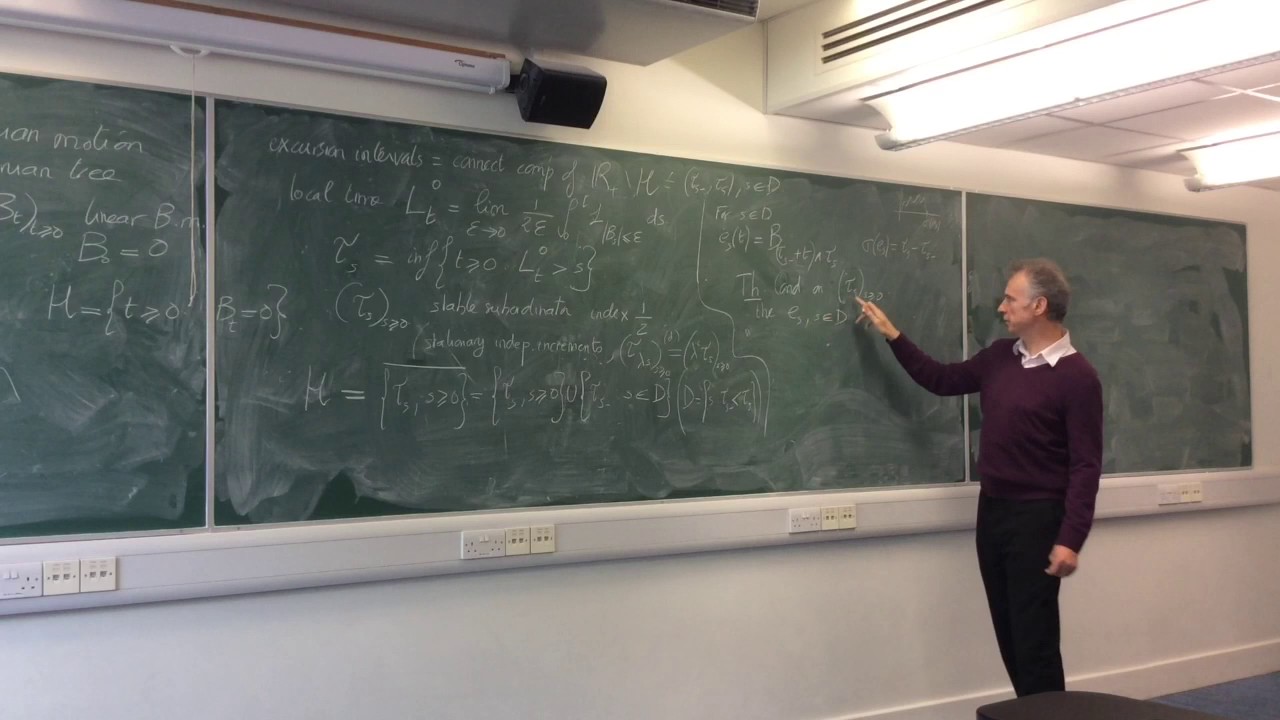 uan motion
nian tree
B_t)_{t≥0} linear B.m.
B_0 = 0
H = {t ≥ 0 B_t = 0}
excursion intervals = connect comp of ℝ_+ \ H = (τ_{s-}, τ_s), s ∈ D
local time L_t^0 = lim_{ε→0} 1/2ε ∫_0^t 1_{|B_s|≤ε} ds
τ_s = inf{t ≥ 0 L_t^0 > s}
(τ_s)_{s≥0} stable subordinator index 1/2
(stationary indep. increments, (τ_{λs})_{s≥0} =^{(d)} (λ²τ_s)_{s≥0})
H = \overline{{τ_s, s ≥ 0}} = {τ_s, s ≥ 0} ∪ {τ_{s-} s ∈ D} (D = {s τ_{s-} < τ_s})
For s ∈ D
e_s(t) = B_{(τ_{s-}+t)∧τ_s}
σ(e_s) = τ_s - τ_{s-}
Th Cond on (τ_s)_{s≥0}
the e_s, s ∈ D